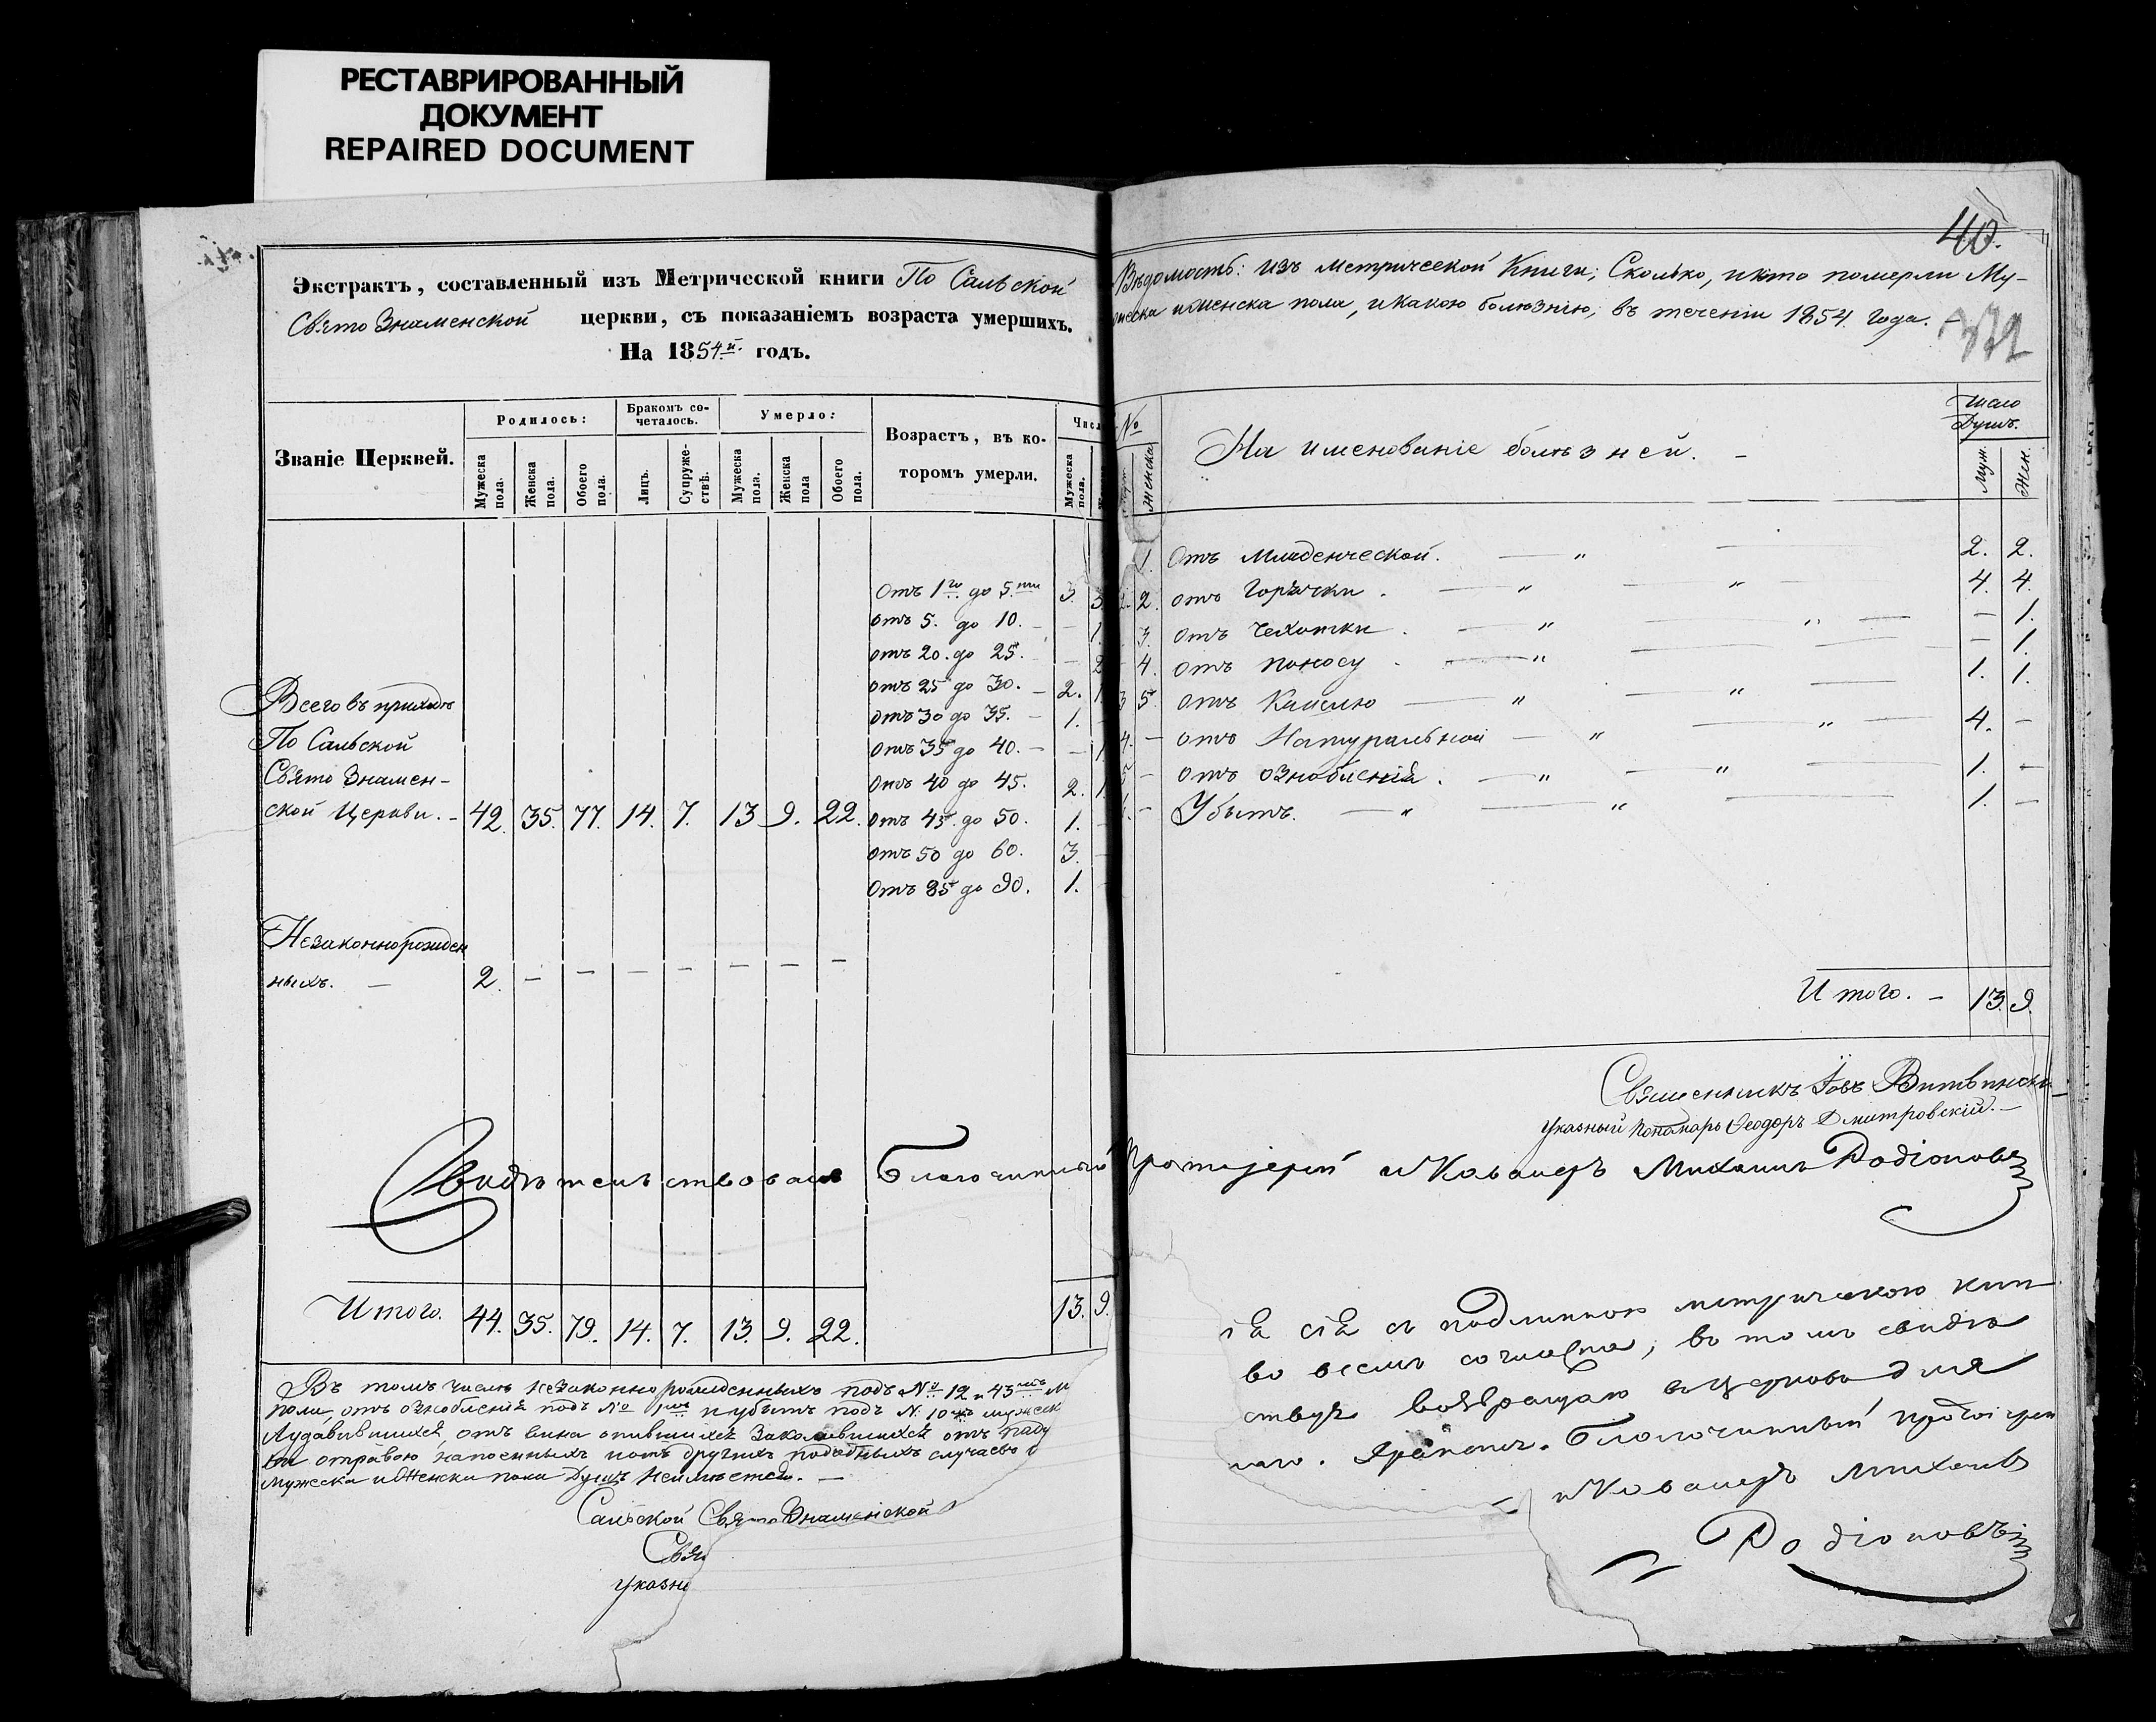 РЕСТАВРИРОВАННЫЙ
ДОКУМЕНТ
REPAIRED DOCUMENT
Экстрактъ, составленный изъ Метрической книги По Сальской
Свято Знаменской церкви, съ показаніемъ возраста умершихъ.
На 1854й. годъ.
Званіе Церквей.
Родилось:
Бракомъ со-
четалось.
Умерло:
Возрастъ, въ ко-
торомъ умерли.
Числ
Мужеска пола.
Женска пола.
Обоего пола.
Лицъ.
Супруже-
ствъ.
Мужеска пола.
Женска пола
Обоего пола.
Мужеска пола.
Отъ 1го до 5.ти 3. 3
отъ 5. до 10. — — 1.
отъ 20. до 25. — 2
отъ 25 до 30. — 2. 1
отъ 30 до 35. — 1.
отъ 35 до 40. — — 1
отъ 40 до 45. 2. 1.
отъ 45. до 50. 1. —
отъ 50 до 60. 3. —
отъ 85 до 90. 1.
Всего въ приходѣ
По Сальской
Свято Знамен-
ской Церкви. — 42. 35. 77. 14. 7. 13 9. 22.
Незаконнорожден
ныхъ. — 2. — — — — — — —
Свидѣтельствовалъ Благочинный
Итого. 44. 35. 79. 14. 7. 13. 9. 22. 13. 9.
Въ томъ числѣ незаконнорожденныхъ подъ № 12 и 43мъ м
пола, отъ ознобленія подъ № 1мъ и убитъ подъ № 10мъ мужеск
А удавившихся, отъ вина опившихся закалявшихся отъ
отравою напоенныхъ и отъ другихъ подобныхъ случаевъ
Мужеска и Женска пола душъ неимѣется. —
Сальской Свято Знаменской
Свя
указн
40.
372
Вѣдомость: изъ Метрической Книги; Сколько, и кто померли Му-
жеска и Женска пола, и какою болѣзнію; въ теченіи 1854. Года. —
№
Женска
На именованіе болѣзней. —
Число
Душъ.
Муж.
Жен.
1. Отъ Младенческой. — „ — 2. 2.
2. 2. отъ Горячки. — „ — „ — 4. 4.
3. отъ Чахотки. — „ — „ — — 1.
— 4. отъ поносу. — „ — — 1.
3 5. отъ Кашлю — „ — „ — 1. 1.
4. — отъ Натуральной — „ — „ — 4. —
5 — отъ ознобленія. — „ — „ — 1. —
— Убитъ. — „ — „ — 1. —
Итого. — 13. 9.
Священникъ Іовъ
Указный пономарь Ѳеодоръ Дмитровскій. —
Протоіерей и Кавалеръ Михаилъ Родіоновъ
ія сія съ подлинною метрическою кни
во всемъ согласна, въ томъ свидѣ
ствуя возвращаю въ Церковь для
Благочинный протоіерей
и Кавалеръ Михаилъ
Родіоновъ